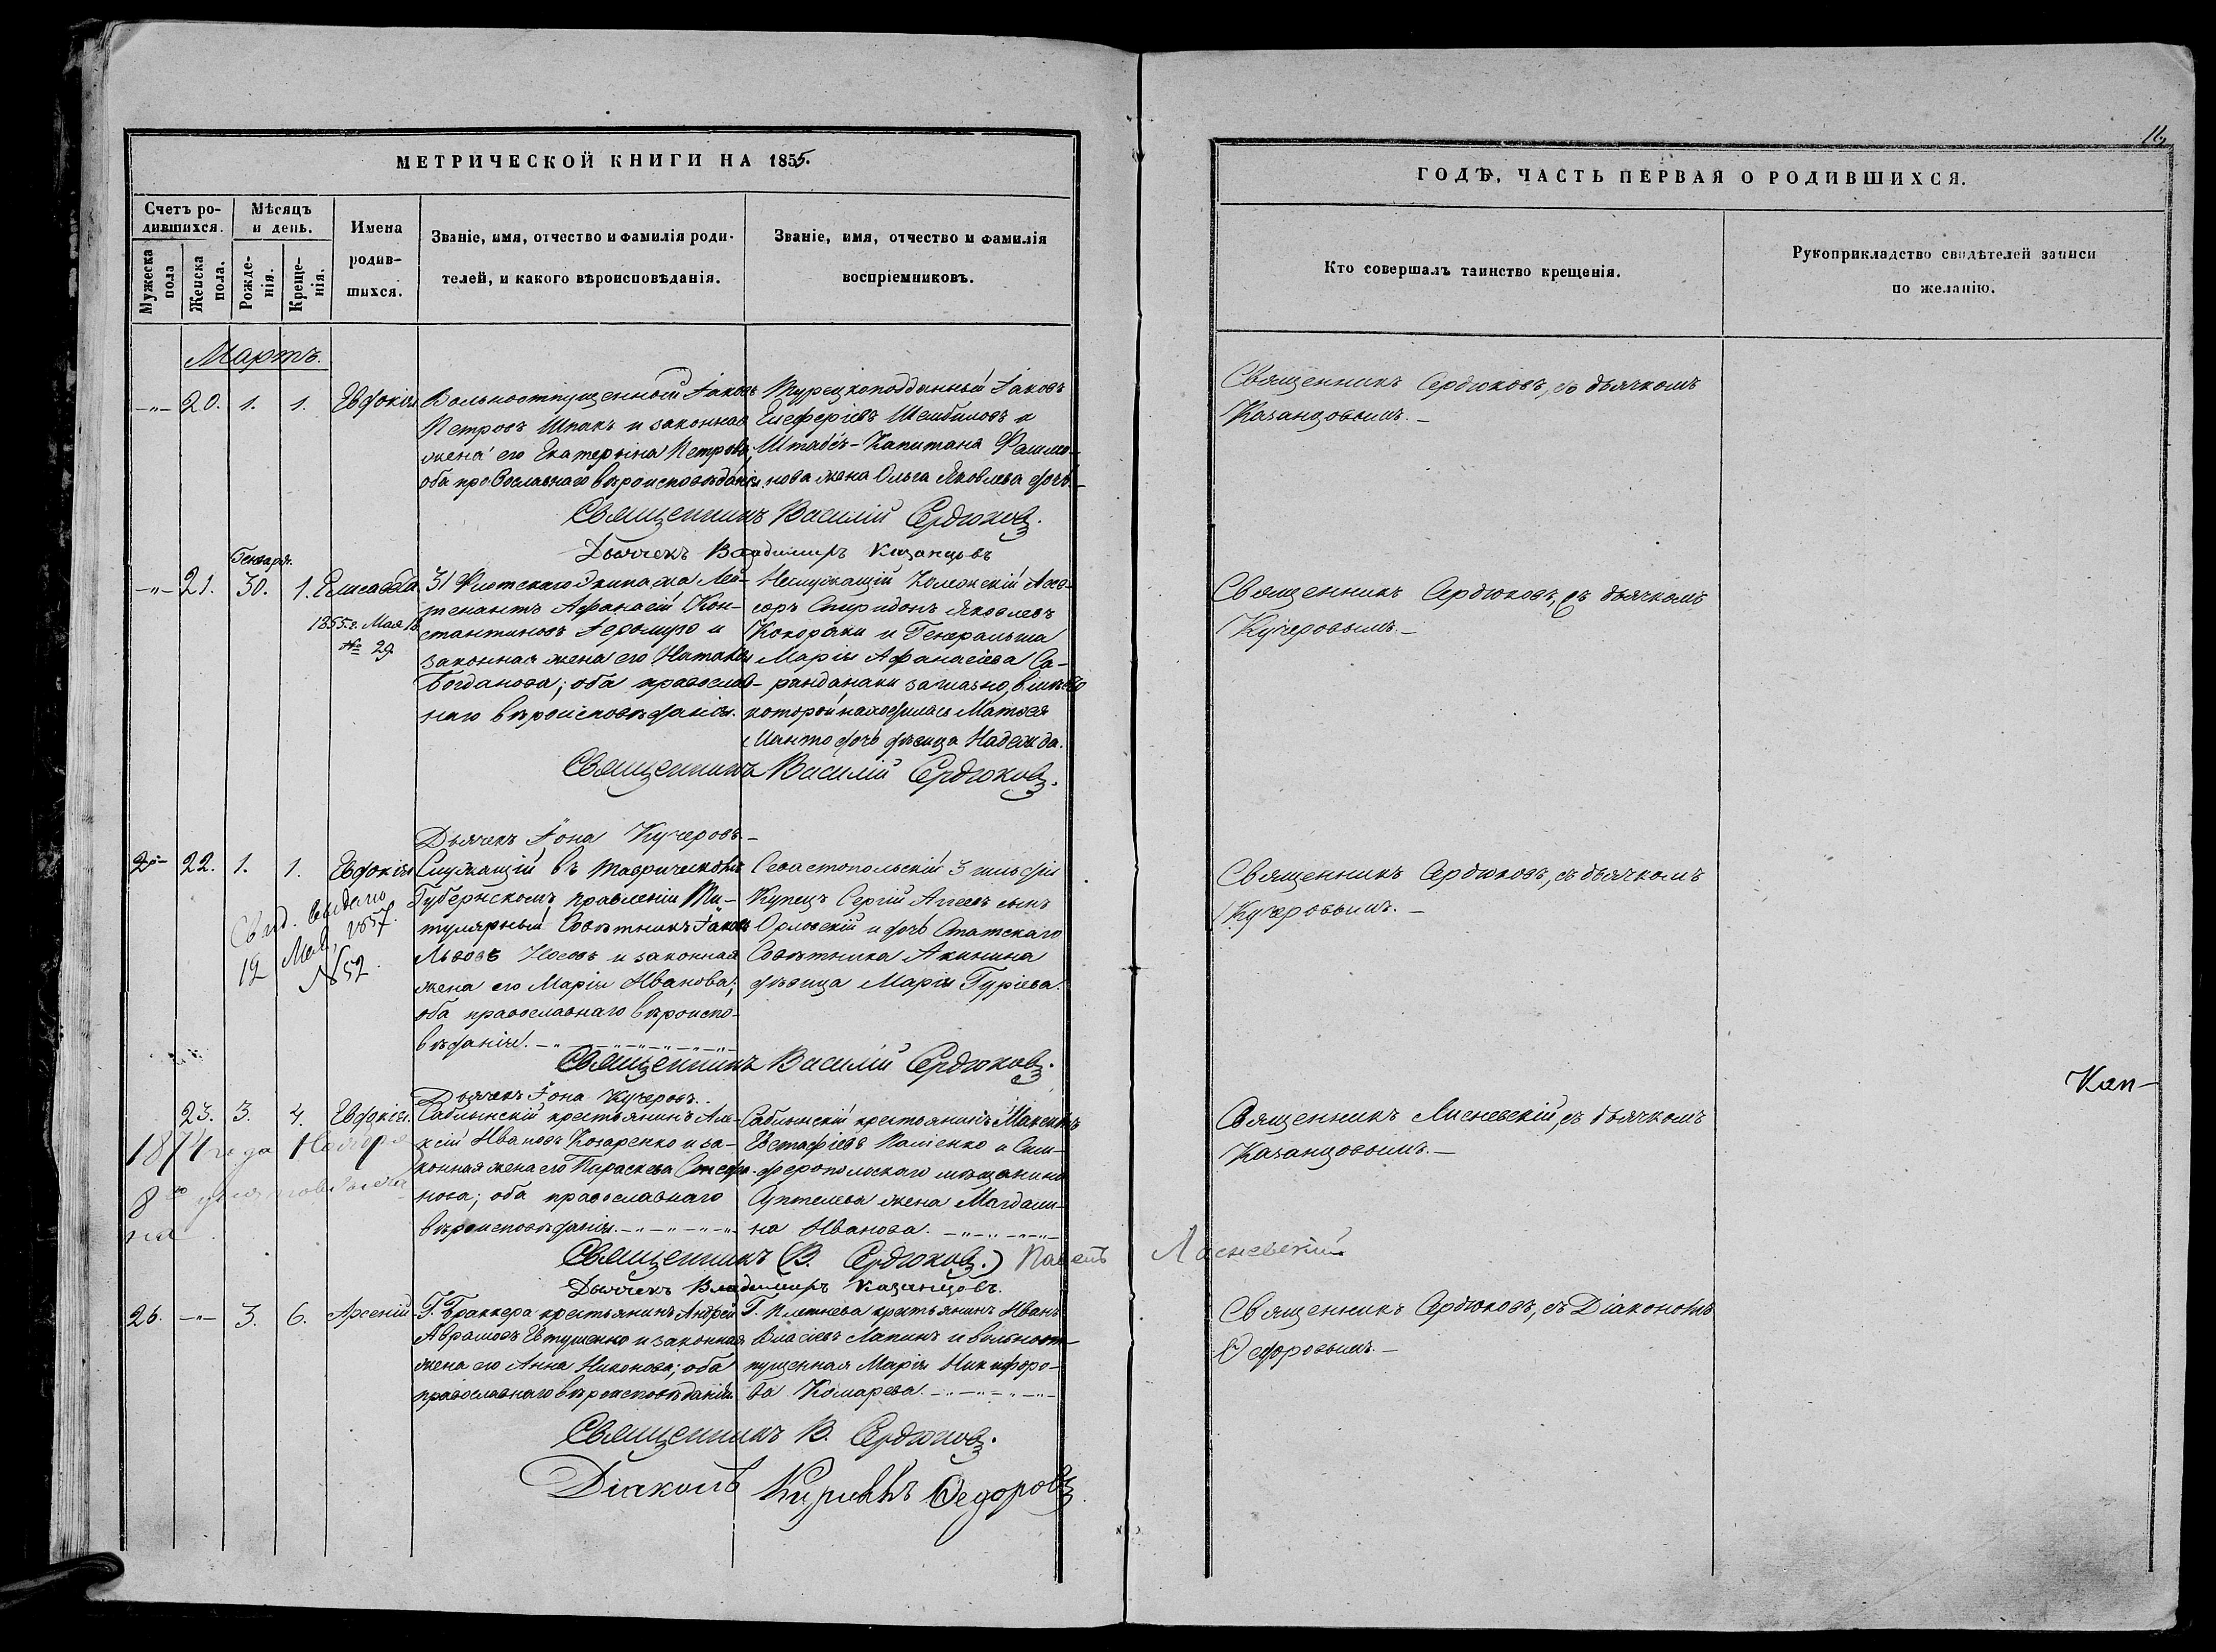 МЕТРИЧЕСКОЙ КНИГИ НА 1855.
Счетъ ро-
дившихся.
Мѣсяцъ
и день.
Мужеска
пола
Женска
пола.
Рожде-
нія.
Креще-
нія.
Имена
родив-
шихся.
Званіе, имя, отчество и фамилія роди-
телей, и какого вѣроисповѣданія.
Званіе, имя, отчество и фамилія
воспріемниковъ.
Мартъ.
-„- 20. 1. 1. Евдокія
Вольноотпущенный Іаковъ
Петровъ Шпакъ и законная
жена его Екатерина Петрова;
оба православнаго вѣроисповѣданія.
Турецкоподданный Іаковъ
Елеферіевъ Шембиловъ и
Штабсъ-Капитана
нова жена Ольга Яковлева дочь.
Священникъ Василій Сердюковъ.
Дьячекъ Владимиръ Казанцовъ
Генваря.
-„- 21. 30. 1. Елисавета
1855 г. Мая 18
№ 29
31 Флотскаго Экипажа Лей-
тенантъ Афанасій Кон-
стантиновъ и
законная жена его Наталія
Богданова; оба православ-
наго вѣроисповѣданія.
Неслужащій Коллежскій Асес-
соръ Спиридонъ Яковлевъ
Кокораки и Генеральша
Марія Афанасіева Са-
рандинаки заглазно, вмѣсто
которой находилась Матвея
Манто дочь дѣвица Надежда.
Священникъ Василій Сердюковъ.
Дьячекъ Іона Кучеровъ.-
22. 1. 1. Евдокія
Свид. выдано
12 Мая, 1857.
№ 52.
Служащій въ Таврическомъ
Губернскомъ правленіи Ти-
тулярный Совѣтникъ Іаковъ
Львовъ Носовъ и законная
жена его Марія Иванова;
оба православнаго вѣроиспо-
вѣданія. -„-„-„-„-„-„-
Севастопольскій 3 гильдіи
Купецъ Сергій Аггеевъ сынъ
Орловскій и дочь Статскаго
Совѣтника Акинина
дѣвица Марія Гуріева.
Священникъ Василій Сердюковъ.
Дьячекъ Іона Кучеровъ.
23. 3. 4. Евдокія.
1874 года Ноября
8го
на
Саблынскій крестьянинъ Але-
ксій Ивановъ Козаренко и за-
конная жена его Параскева Стефа-
нова; оба православнаго
вѣроисповѣданія. -„-„-„-„-
Саблынскій крестьянинъ Максимъ
Евстафіевъ Паліенко и Сим-
феропольскаго мѣщанина
жена Магдали-
на Иванова. -„-„-„-
Священникъ (В. Сердюковъ.) Павелъ Лисневскій
Дьячекъ Владимиръ Казанцовъ.
26. -„- 3. 6. Арсеній
Г. Браккера крестьянинъ Андрей
Аврамовъ Евтушенко и законная
жена его Анна Никонова; оба
православнаго вѣроисповѣданія.
Г. Плетнева крестьянинъ Иванъ
Власіевъ Лапинъ и вольноот-
пущенная Марія Никифоро-
ва Комарева. -„-„-„-„-
Священникъ В. Сердюковъ.
Діаконъ Кириллъ Ѳедоровъ
16
ГОДѢ, ЧАСТЬ ПЕРВАЯ О РОДИВШИХСЯ.
Кто совершалъ таинство крещенія.
Рукоприкладство свидѣтелей записи
по желанію.
Священникъ Сердюковъ, съ дьячкомъ
Казанцовымъ.-
Священникъ Сердюковъ, съ дьячкомъ
Кучеровымъ.-
Священникъ Сердюковъ, съ дьячкомъ
Кучеровымъ.-
Кап-
Священникъ Лисневскій, съ дьячкомъ
Казанцовымъ.-
Священникъ Сердюковъ, съ Діакономъ
Ѳедоровымъ.-